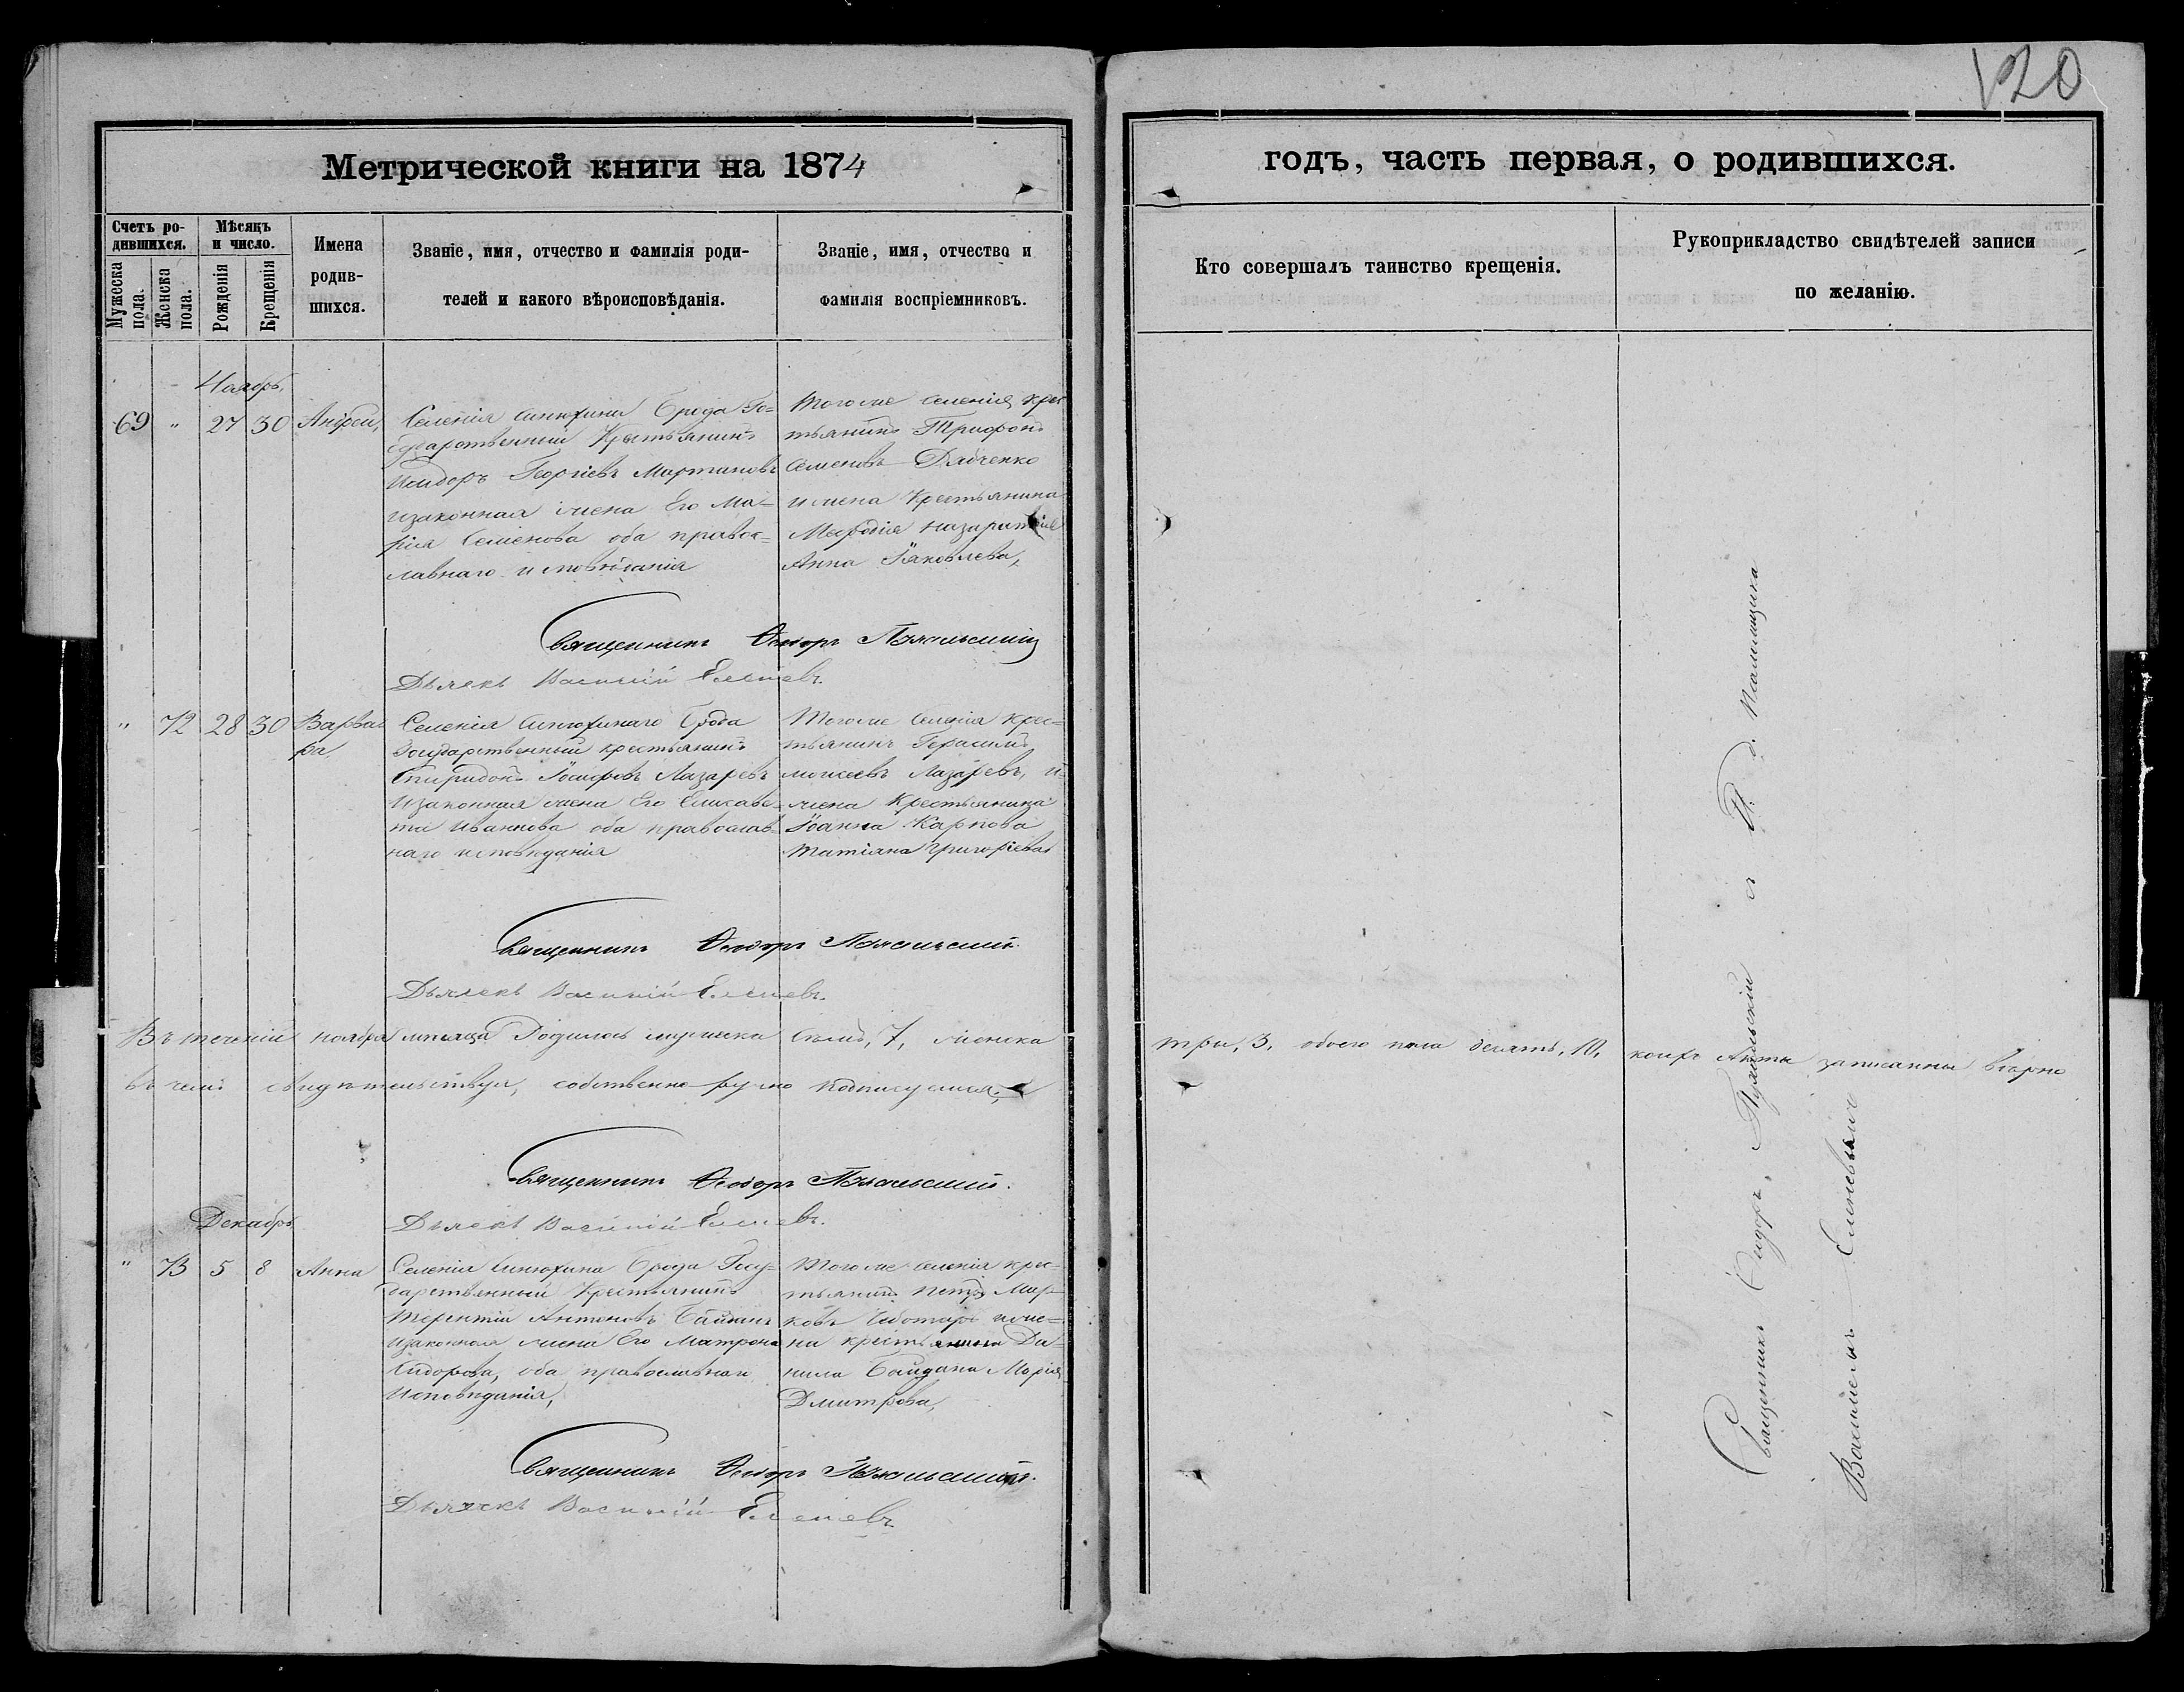 120
Метрической книги на 1874
годъ, часть первая, о родившихся.
Счетъ ро-
дившихся.
Мужеска пола.
Женска пола.
Мѣсяцъ
и число.
Рожденія
Крещенія
Имена
родив-
шихся.
Званіе, имя, отчество и фамилія роди-
телей и какого вѣроисповѣданія.
Званіе, имя, отчество и
фамилія воспріемниковъ.
Кто совершалъ таинство крещенія.
Рукоприкладство свидѣтелей записи
по желанію.
Ноябрь,
69 " 27 30 Андрей,
Селенія Синюхина Брода Го-
сударственный Крестьянинъ
Исидоръ Георгіевъ Мартиновъ
изаконная жена Его Ма-
рія Семенова оба правос-
лавнаго исповѣданія
Тогоже Селенія крес
тьянинъ Трифонъ
Семеновъ Дядченко
ижена Крестьянина
Мефодія
Анна Іяковлева,
Священникъ Ѳеодоръ
Дьячекъ Василій
" 72 28 30 Варва
ра
Селенія Синюхинаго Брода
Государственный крестьянинъ
Спиридонъ Іосифовъ Лазаревъ
Изаконная жена Его Елисаве-
та Иваннова оба православ
наго исповѣданія
Тогоже Селенія Крес-
тьянинъ Герасимъ
моисеевъ Лазаревъ, и-
жена Крестьянина
Іоанна Карпова
Татіана Григоріева
Священникъ Ѳеодоръ
Дьячекъ Василій
Въ теченіи ноября мѣсяца Родилось мужеска Семь, 7, женска три, 3, обоего пола десять, 10, коихъ Акты записанны вѣрно
въ чемъ свидѣтельствуя, собственно-ручно подписуемся,
Священникъ Ѳеодоръ
Дьячекъ Василій
Декабрь
" 73 5 8 Анна
Селенія Синюхина Брода Госу-
дарственный Крестьянинъ
Терентій Антоновъ
Изаконная жена Его Матрона
Сидорова, оба православнаго
Исповѣданія,
Тогоже селенія крес-
тьянинъ Петръ Мар-
ковъ Чеботарь ижe-
на крестьянина Да-
нила Байдана Марія
Дмитрова,
Священникъ Ѳеодоръ
Дьячекъ Василій
Священникъ Ѳеодоръ
и. д. Псаломщика
Василій